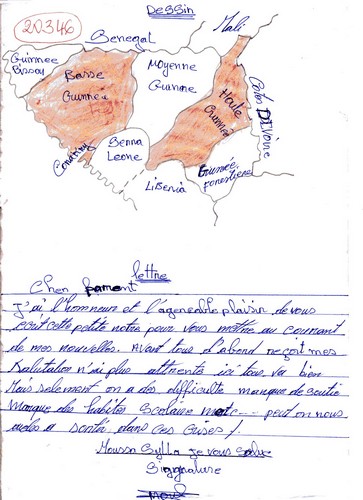 Dessin
20346
Senegal
Mali
Guinnee
Bissou
Basse
Guinnée
Moyenne
Guinnee
Haute
Guinnee
Cotes D'IVoire
Conakry
Serra
Leone
LiBeria
Guinée
Forestiere
lettre
Cher parment
J'ai l'honneur et l'agereable plaisir de vous
ecrit cette petite notre pour vous mettre au courrant
de mes nouvelles. Avant tous d'abord reçoit mes
Salutation n'ai plus attrients ici tous va bien
Mais selement on a des difficulte manque de
Manque des habites Scolaire etc--- peut on nous
aides a sortir dans ces Crises!
Moussa Sylla je vous salue
Signature